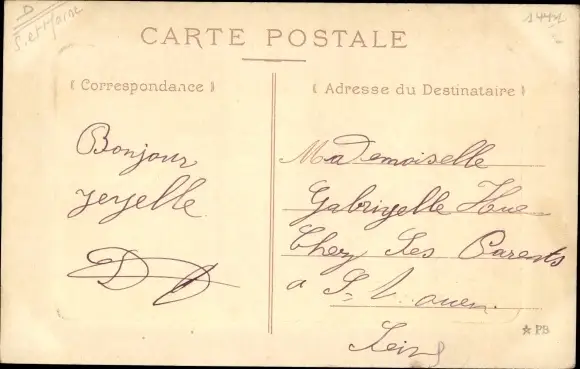 D
S. et Marne
CARTE POSTALE
( Correspondance )
Bonjour
yeyelle
D D
( Adresse du Destinataire )
Mademoiselle
Gabriyelle Hue
Chez Ses Parents
a St Ouen
Seine
★ PB